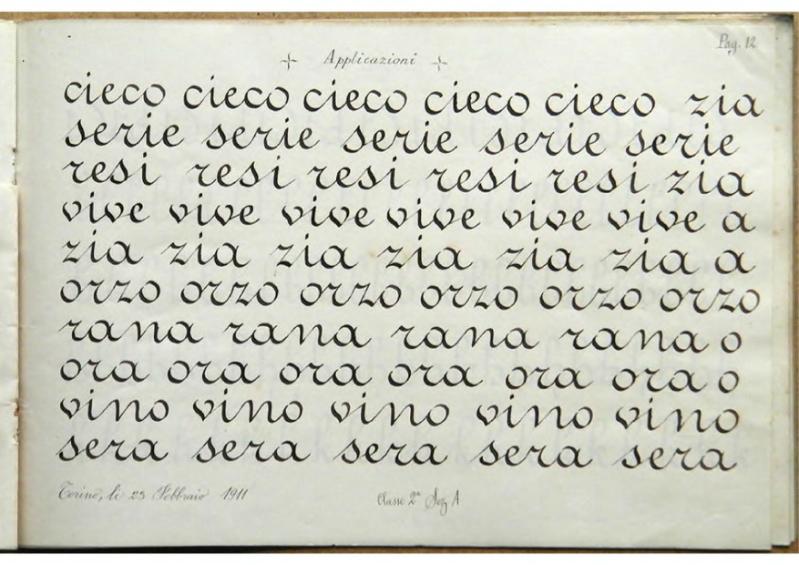 Pag. 12
Applicazioni
cieco cieco cieco cieco cieco zia
serie serie serie serie serie
resi resi resi resi resi zia
vive vive vive vive vive vive a
zia zia zia zia zia zia a
orzo orzo orzo orzo orzo orzo
rana rana rana rana o
ora ora ora ora ora ora o
vino vino vino vino vino
sera sera sera sera sera
Torino, li 23 Febbraio 1911
Classe 2ª Sez A